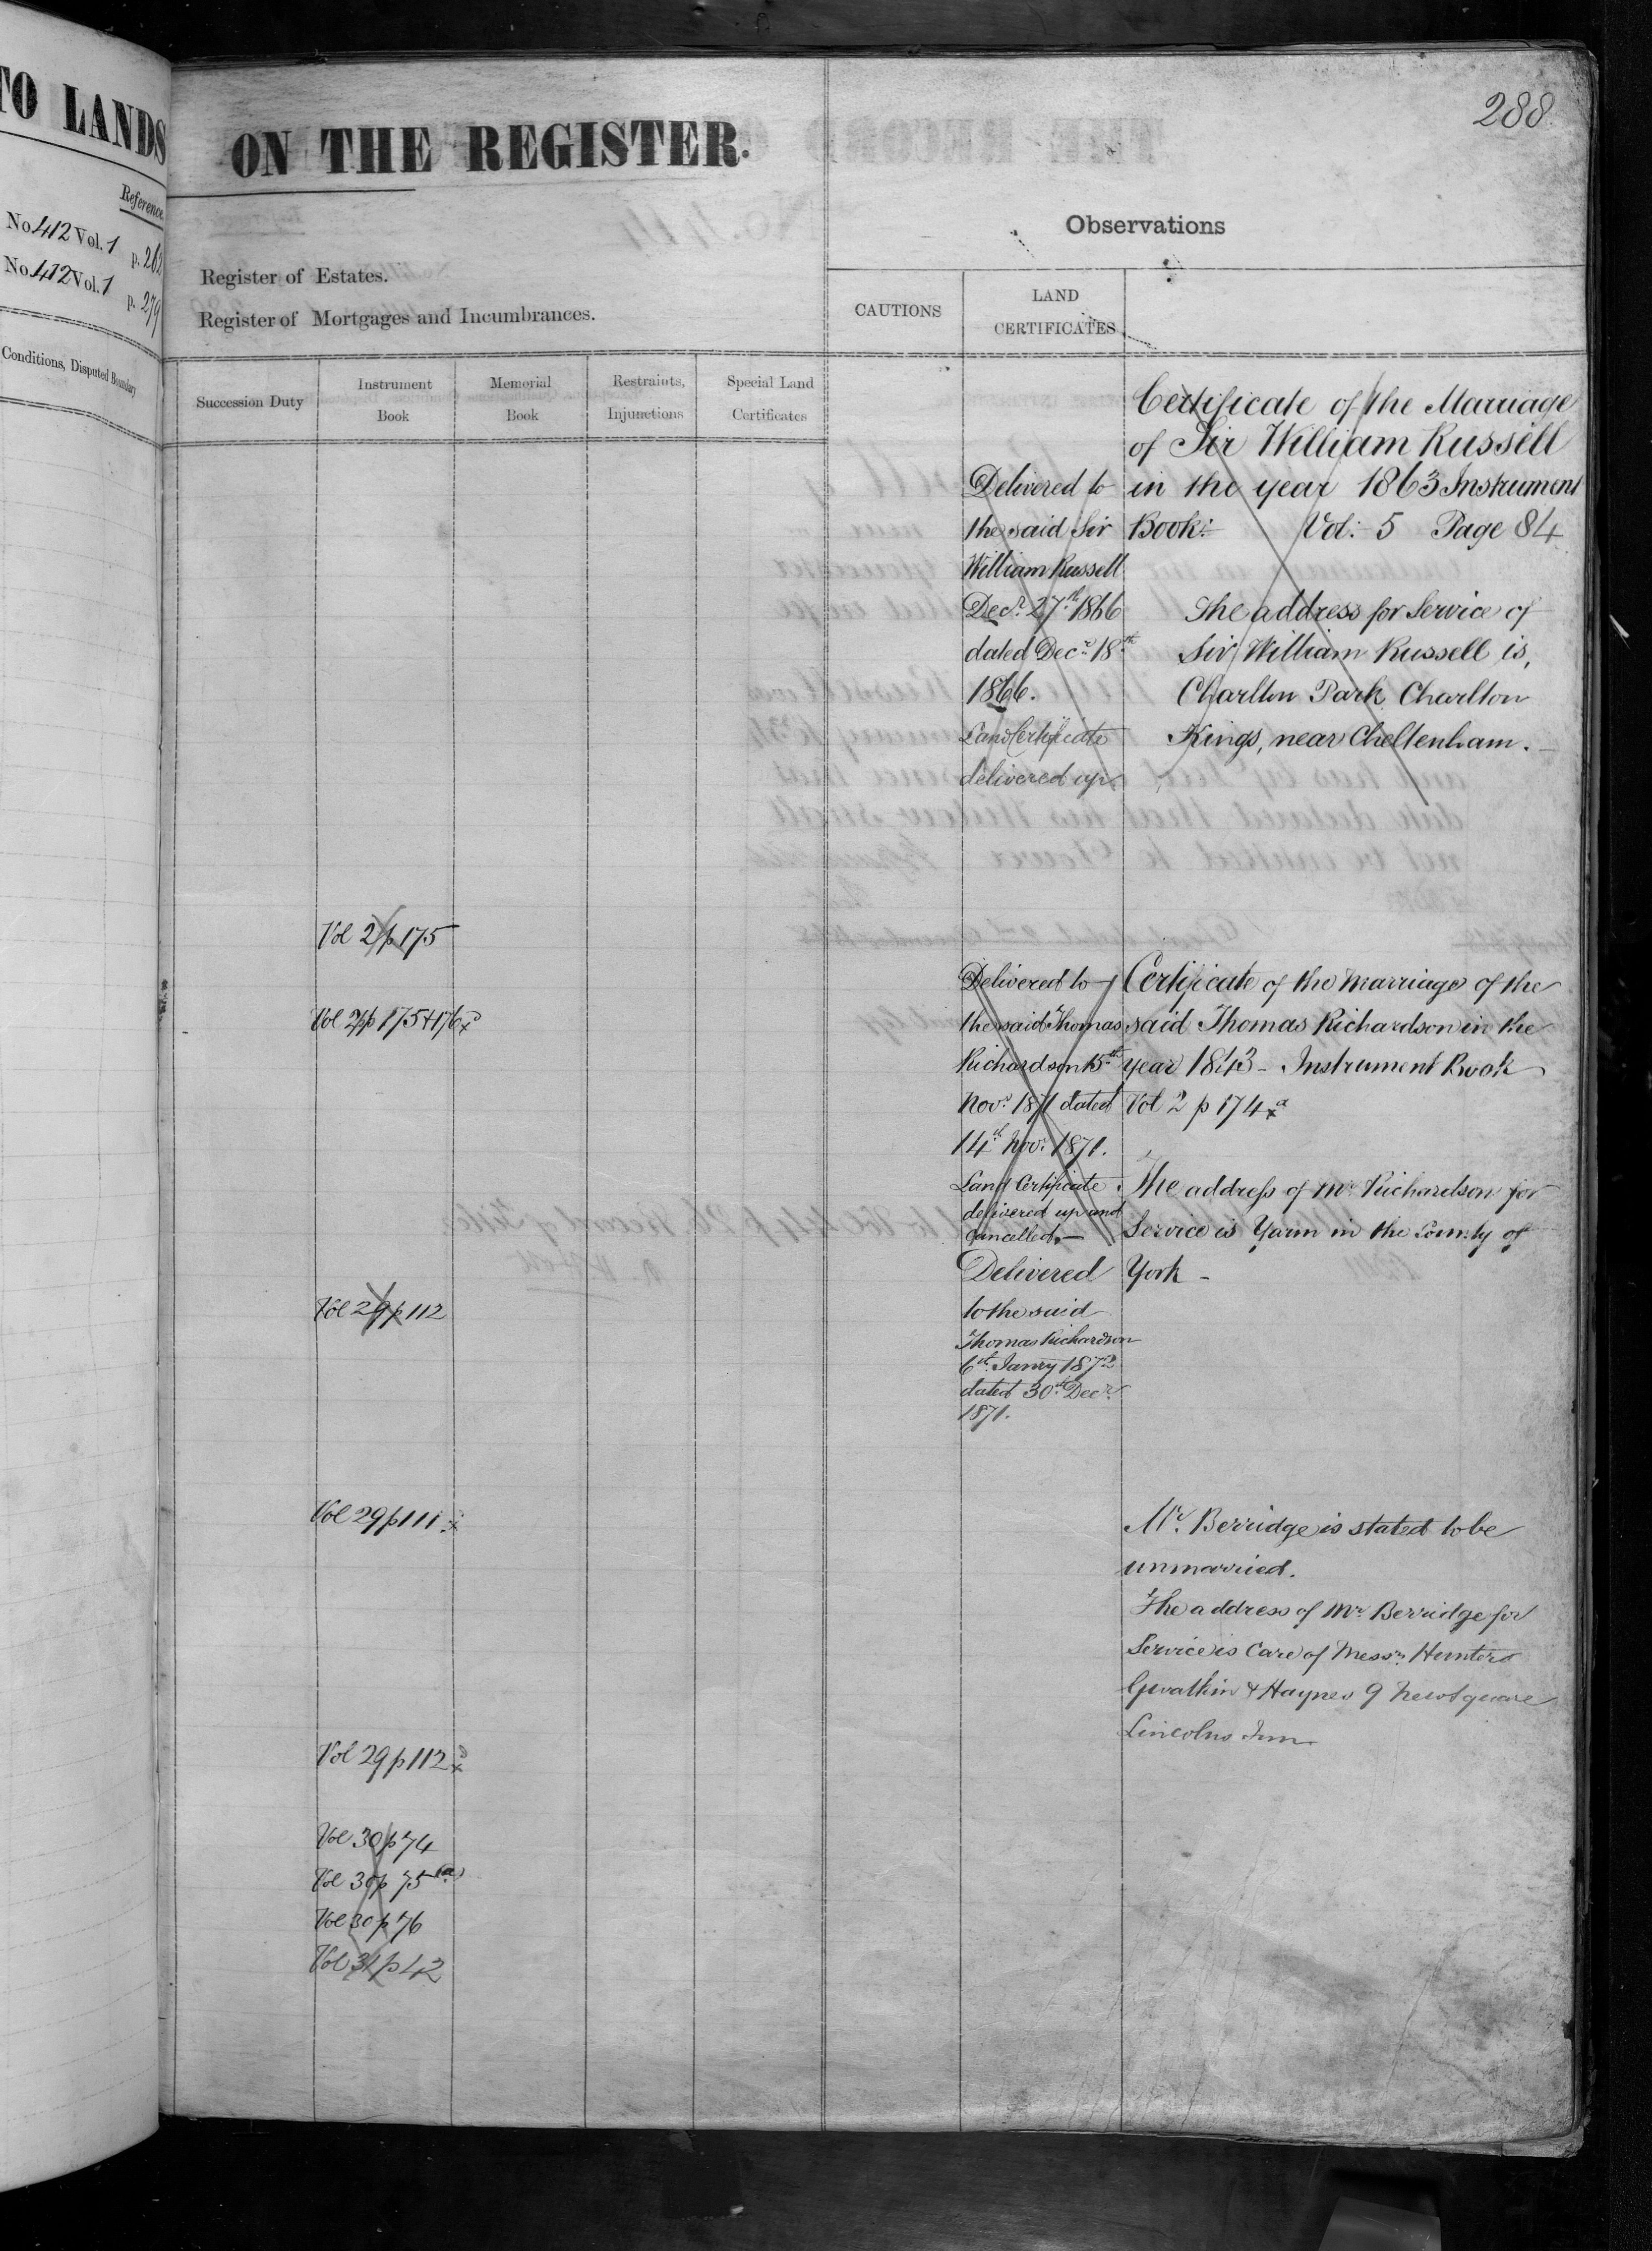 TO LANDS
Reference.
No 412 Vol. 1 p. 262
No 412 Vol. 1 p. 279
Conditions, Disputed Boundary
288
ON THE REGISTER.
Observations
Register of Estates.
Register of Mortgages and Incumbrances.
CAUTIONS
LAND
CERTIFICATES
Succession Duty
Instrument
Book
Memorial
Book
Restraints,
Injunctions
Special Land
Certificates
Vol 2 p 175
Vol 2 pp 175 & 176
Vol 29 p 112
Vol 29 p 111
Vol 29 p 112
Vol 30 p 74
Vol 30 p 75 (a)
Vol 30 p 76
Vol 31 p 42
Delivered to
the said Sir
William Russell
Decr. 27th 1866
dated Decr. 18th
1866.
Land Certificate
delivered up.
Delivered to
the said Thomas
Richardson 15th
Novr. 1871 dated
14th Novr. 1871.
Land Certificate
delivered up and
cancelled.—
Delivered
to the said
Thomas Richardson
6th Janry 1872
dated 30th Decr.
1871.
Certificate of the Marriage
of Sir William Russell
in the year 1863 Instrument
Book: Vol: 5 Page 84
The address for Service of
Sir William Russell is,
Charlton Park, Charlton
Kings, near Cheltenham.
Certificate of the Marriage of the
said Thomas Richardson in the
year 1843 - Instrument Book
Vol 2 p 174
The address of Mr. Richardson for
Service is Yarm in the County of
York -
Mr. Berridge is stated to be
unmarried.
The address of Mr. Berridge for
Service is Care of Messrs. Hunters
Gwatkin & Haynes 9 New Square
Lincolns Inn